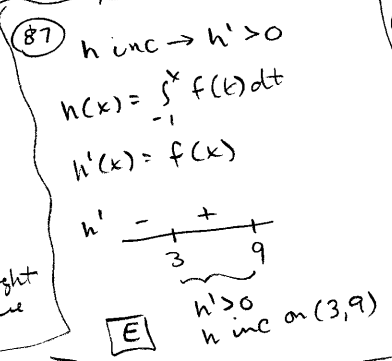 87
h inc → h' > 0
h(x) = ∫₋₁ˣ f(t) dt
h'(x) = f(x)
h' - +
3 9
h' > 0
E h inc on (3,9)